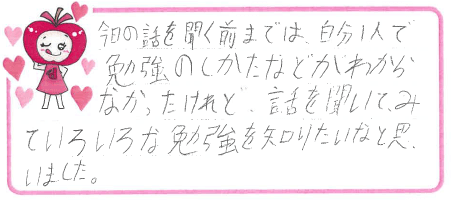 今日の話を聞く前までは、自分1人で
勉強のしかたなどがわから
なかったけれど、話を聞いて、み
ていろいろな勉強を知りたいなと思
いました。